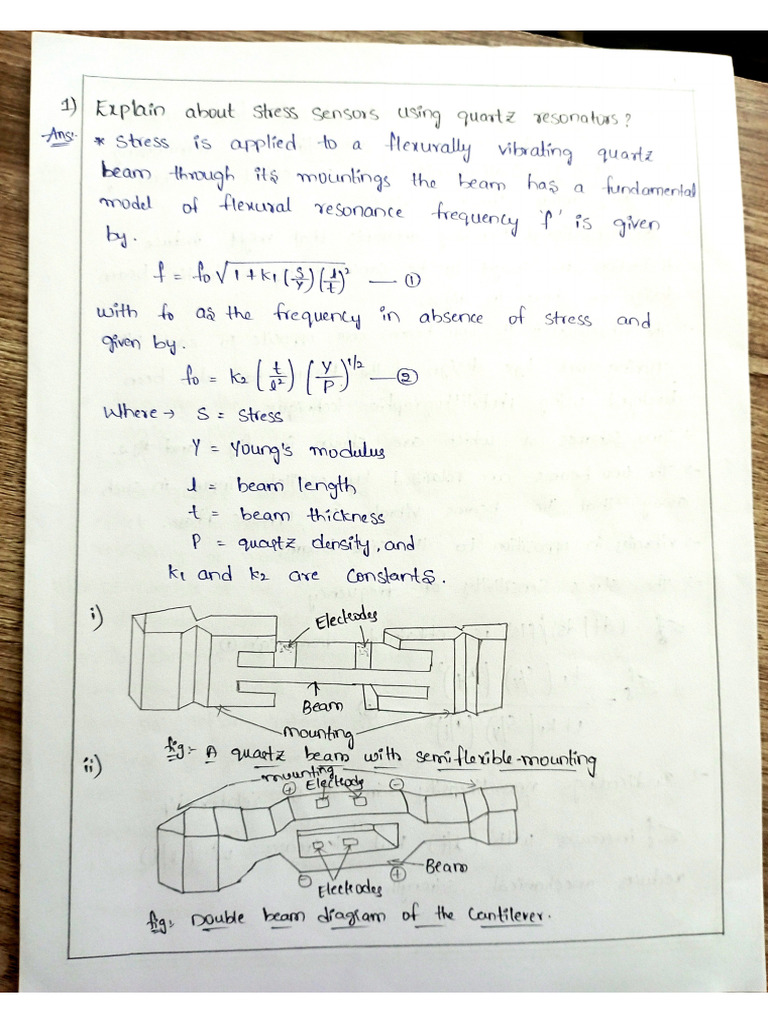 1) Explain about stress sensors using quartz resonators?
Ans:- * Stress is applied to a flexurally vibrating quartz
beam through its mountings the beam has a fundamental
model of flexural resonance frequency 'f' is given
by.
f = f₀√(1+k₁(S/Y)(l/t)²) — ①
with f₀ as the frequency in absence of stress and
given by.
f₀ = k₂ (t/l²) (Y/P)^1/2 — ②
Where → S = stress
Y = Young's modulus
l = beam length
t = beam thickness
P = quartz density, and
k₁ and k₂ are constants.
i)
Electrodes
Beam
mounting
fig:- A quartz beam with semiflexible-mounting
ii)
mounting
⊕ Electrode ⊖
Beam
⊖ Electrodes ⊕
fig: Double beam diagram of the Cantilever.